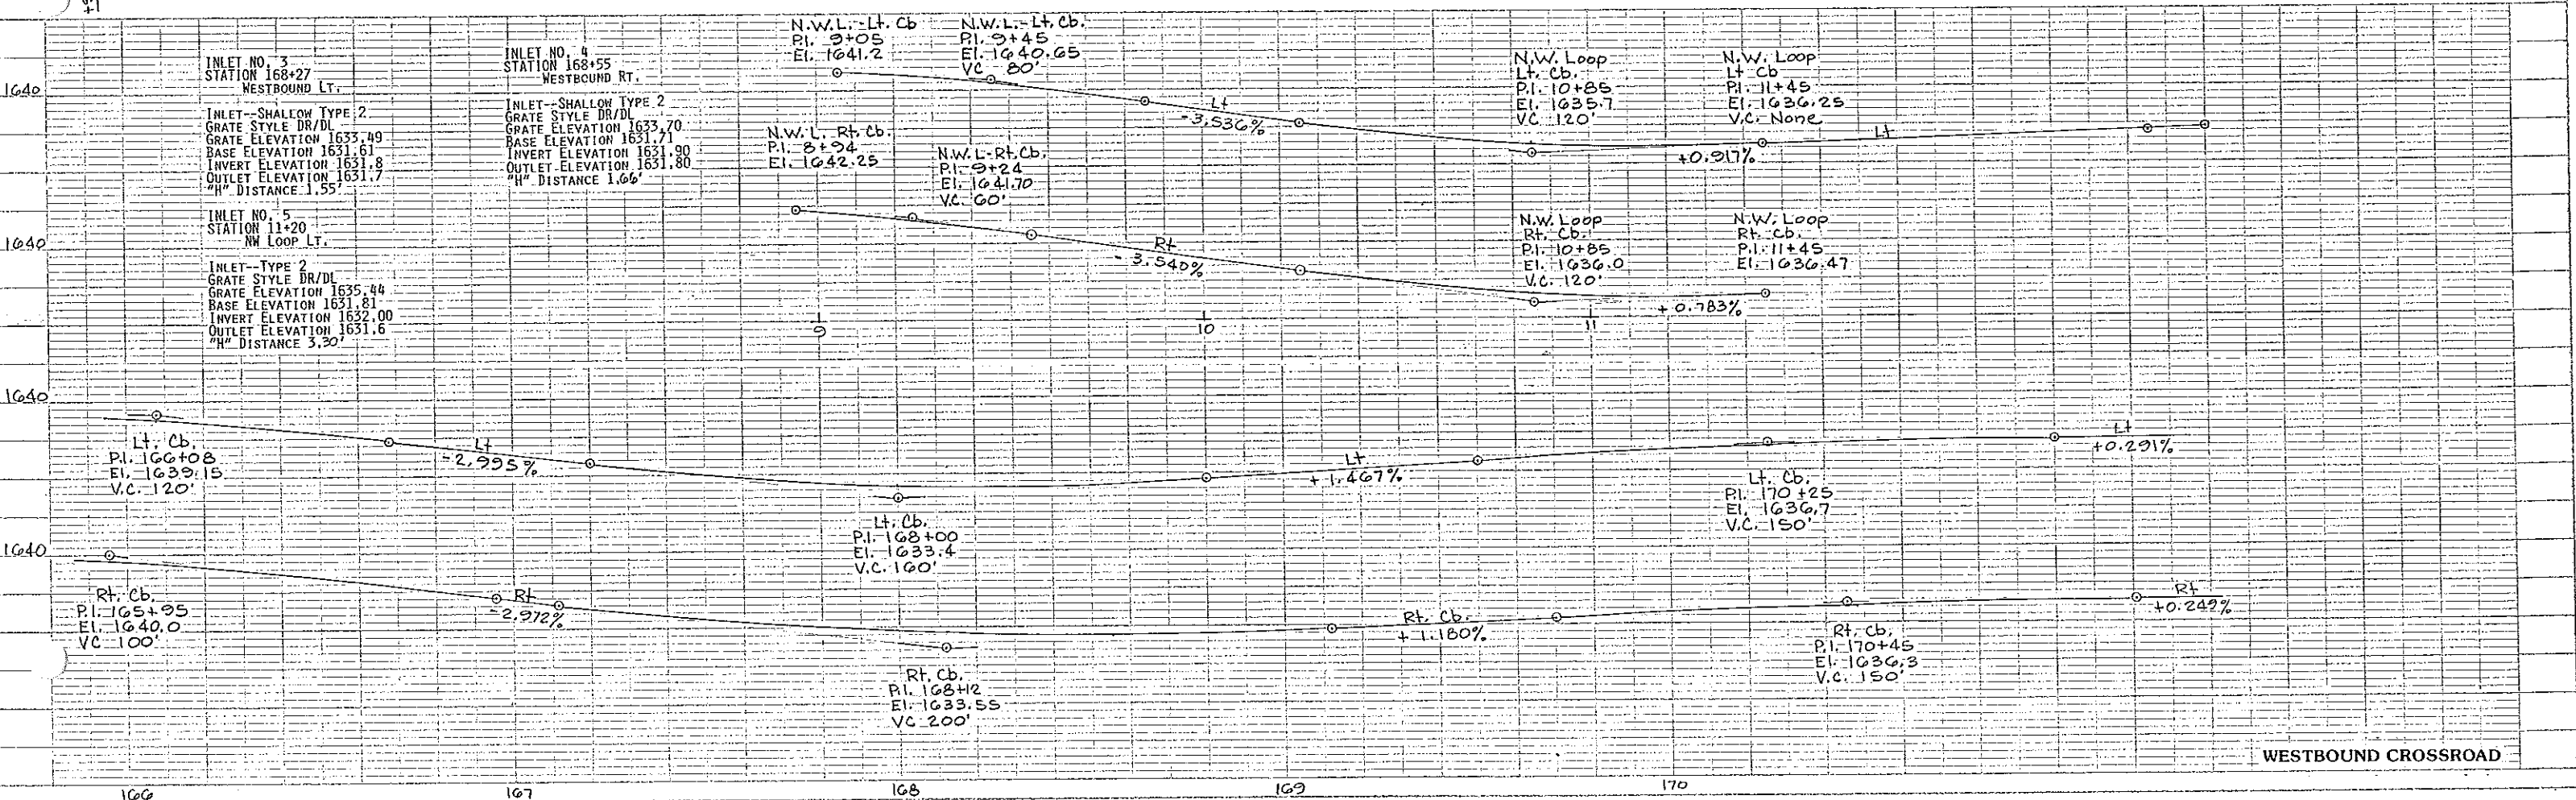 INLET NO. 3
STATION 168+27
WESTBOUND LT.
INLET--SHALLOW TYPE 2
GRATE STYLE DR/DL
GRATE ELEVATION 1633.49
BASE ELEVATION 1631.61
INVERT ELEVATION 1631.8
OUTLET ELEVATION 1631.7
"H" DISTANCE 1.55'
INLET NO. 5
STATION 11+20
NW LOOP LT.
INLET--TYPE 2
GRATE STYLE DR/DL
GRATE ELEVATION 1635.44
BASE ELEVATION 1631.81
INVERT ELEVATION 1632.00
OUTLET ELEVATION 1631.6
"H" DISTANCE 3.30'
INLET NO. 4
STATION 168+55
WESTBOUND RT.
INLET--SHALLOW TYPE 2
GRATE STYLE DR/DL
GRATE ELEVATION 1633.70
BASE ELEVATION 1631.71
INVERT ELEVATION 1631.90
OUTLET ELEVATION 1631.80
"H" DISTANCE 1.66'
N.W.L.-Lt. Cb
P.I. 9+05
El. 1641.2
N.W.L.-Lt. Cb.
P.I. 9+45
El. 1640.65
VC 80'
Lt
-3.536%
N.W. Loop
Lt. Cb.
P.I. 10+85
El. 1635.7
VC 120'
N.W. Loop
Lt Cb
P.I. 11+45
El. 1636.25
V.C. None
+0.917%
Lt
1640
N.W.L. Rt. Cb.
P.I. 8+94
El. 1642.25
N.W.L-Rt. Cb.
P.I. 9+24
El. 1641.70
V.C. 60'
Rt
-3.540%
N.W. Loop
Rt. Cb.
P.I. 10+85
El. 1636.0
V.C. 120'
N.W. Loop
Rt. Cb.
P.I. 11+45
El. 1636.47
+0.783%
1640
9
10
11
1640
Lt. Cb.
P.I. 166+08
El. 1639.15
V.C. 120'
Lt
-2.995%
Lt. Cb.
P.I. 168+00
El. 1633.4
V.C. 160'
Lt
+1.467%
Lt. Cb.
P.I. 170+25
El. 1636.7
V.C. 150'
Lt
+0.291%
1640
Rt. Cb.
P.I. 165+95
El. 1640.0
VC 100'
Rt
-2.972%
Rt. Cb.
P.I. 168+12
El. 1633.55
VC 200'
Rt. Cb.
+1.180%
Rt. Cb.
P.I. 170+45
El. 1636.3
V.C. 150'
Rt
+0.249%
WESTBOUND CROSSROAD
166
167
168
169
170